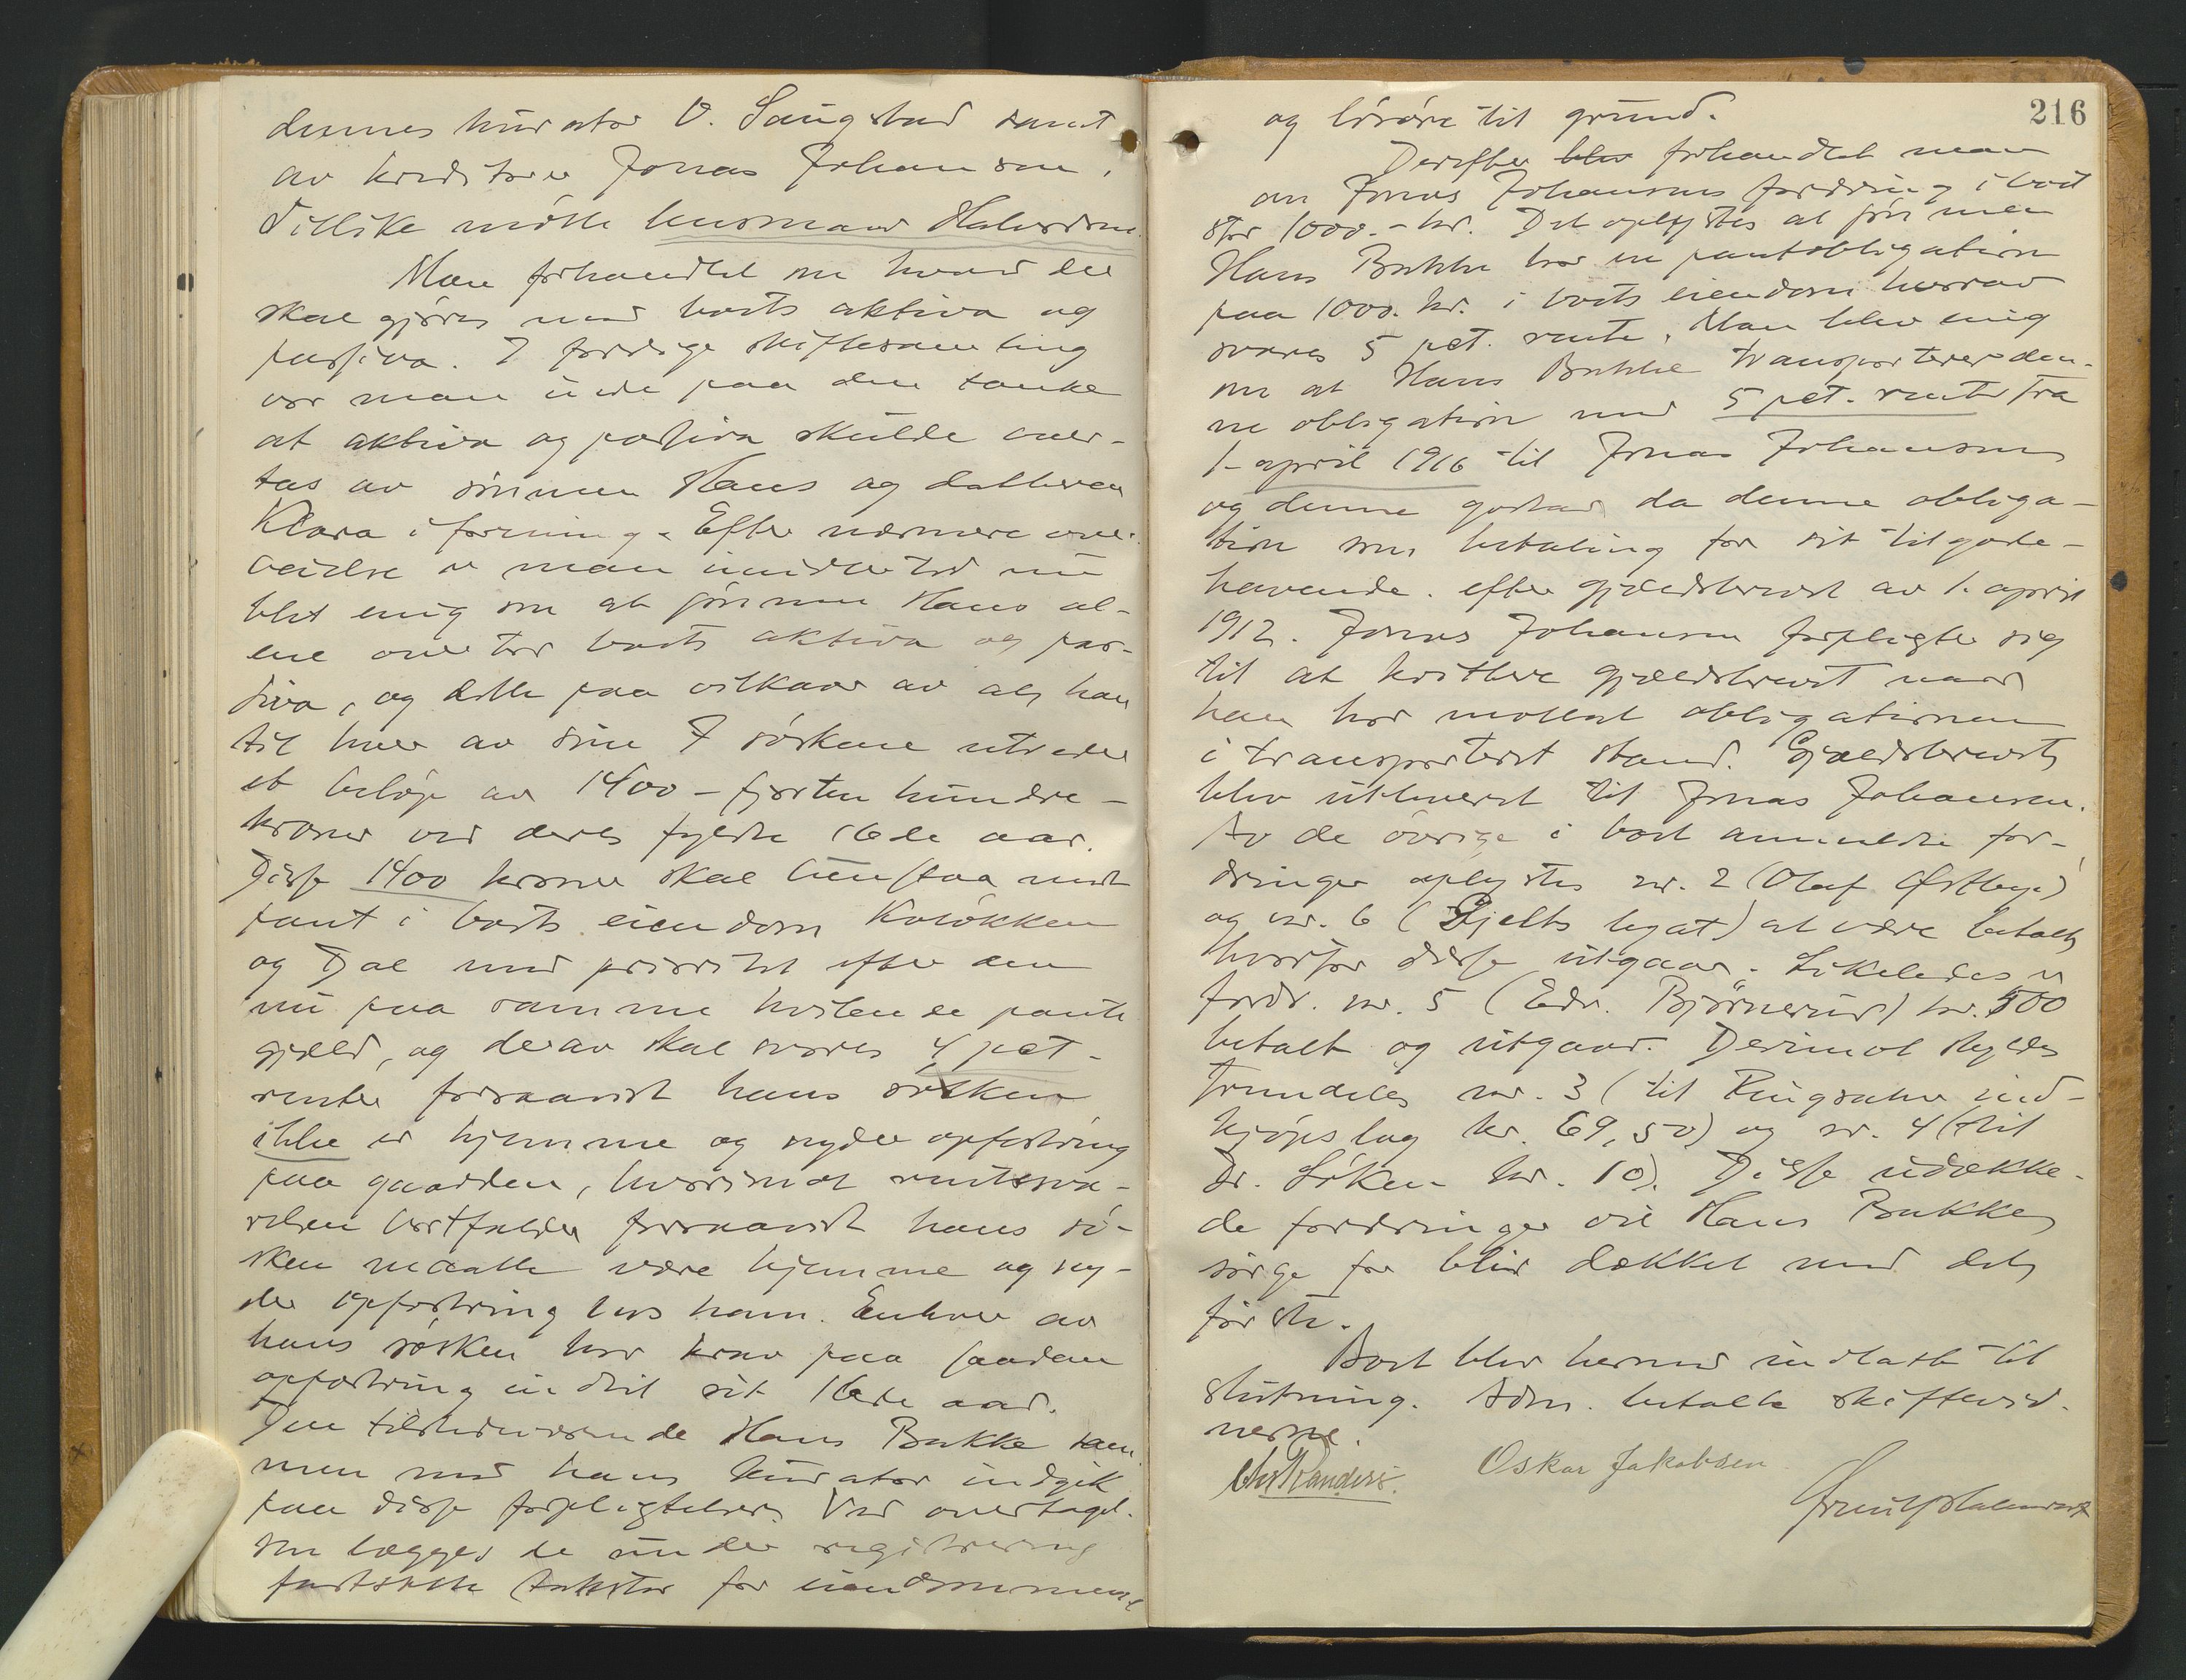 dennes kurator O. Saugstad samt
av kreditorer Jonas Johansen.
Tillike møtte lensmand Halvorsen.
Man forhandlet om hvad der
skal gjøres med boets aktiva og
passiva. I forrige skiftesamling
var man inde paa den tanke
at aktiva og passiva skulde over-
tas av sønnen Hans og datteren
Klara i forening. Efter nærmere over-
veielse er man imidlertid nu
blit enig om at sønnen Hans al-
ene overtar boets aktiva og pas-
siva, og dette paa vilkaar av at han
til hver av sine 7 søskene utreder
et beløp av 1400 - fjorten hundre -
kroner ved deres fyldte 16de aar.
Disse 1400 kroner skal henstaa mot
pant i boets eiendom Kvløkken
og Dal med prioritet efter den
nu paa samme heftende pante
gjæld, og derav skal svares 4 pct.
renter forsaavidt hans søsken
ikke er hjemme og nyder opfostring
paa gaarden, hvorimot rentesva-
relsen bortfalder forsaavidt hans sø-
sken maatte være hjemme og ny-
der opfostring hos ham. Enhver av
hans søsken har krav paa saadan
opfostring indtil sit 16de aar.
Den tilstedeværende Hans Bakke sam
men med hans kurator indgik
paa disse forpligtelser. Ved overtagel-
sen lægges de under registrering
fastsatte takster for eiendommene
216
og løsøre til grund.
Derefter blev forhandlet man
om Jonas Johansens fordring i boet
stor 1000.- kr. Det oplystes at sønnen
Hans Bakke har en pantobligation
paa 1000. kr. i boets eiendom hvorav
svares 5 pct. rente. Man blev enig
om at Hans Bakke transporterer den-
ne obligation med 5 pct. rente fra
1. april 1916 til Jonas Johansen
og denne godtar da denne obliga-
tion som betaling for sit tilgode-
havende efter gjældsbrevet av 1. april
1912. Jonas Johansen forpligter sig
til at kvittere gjældsbrevet naar
han har mottat obligationen
i transportert stand. Gjældsbrevet
blev utleveret til Jonas Johansen.
Av de øvrige i boet anmeldte for-
dringer oplystes nr. 2 (Olaf Østbye)
og nr. 6 (Gjelts legat) at være betalt
hvorfor disse utgaar. Likeledes er
fordr. nr. 5 (Edv. Bjørnerud) kr. 500
betalt og utgaar. Derimot skyldes
fremdeles nr. 3 (til Ringsaker ind-
kjøpslag kr. 69,50) og nr. 4 (til
Dr. Løken kr. 10). Disse udække-
de fordringer vil Hans Bakke
sørge for blir dækket med det
første.
Boet blev hermed indlatt til
slutning. Adm. betalte skiftevid-
nerne.
Chr Randers. Oskar Jakobsen